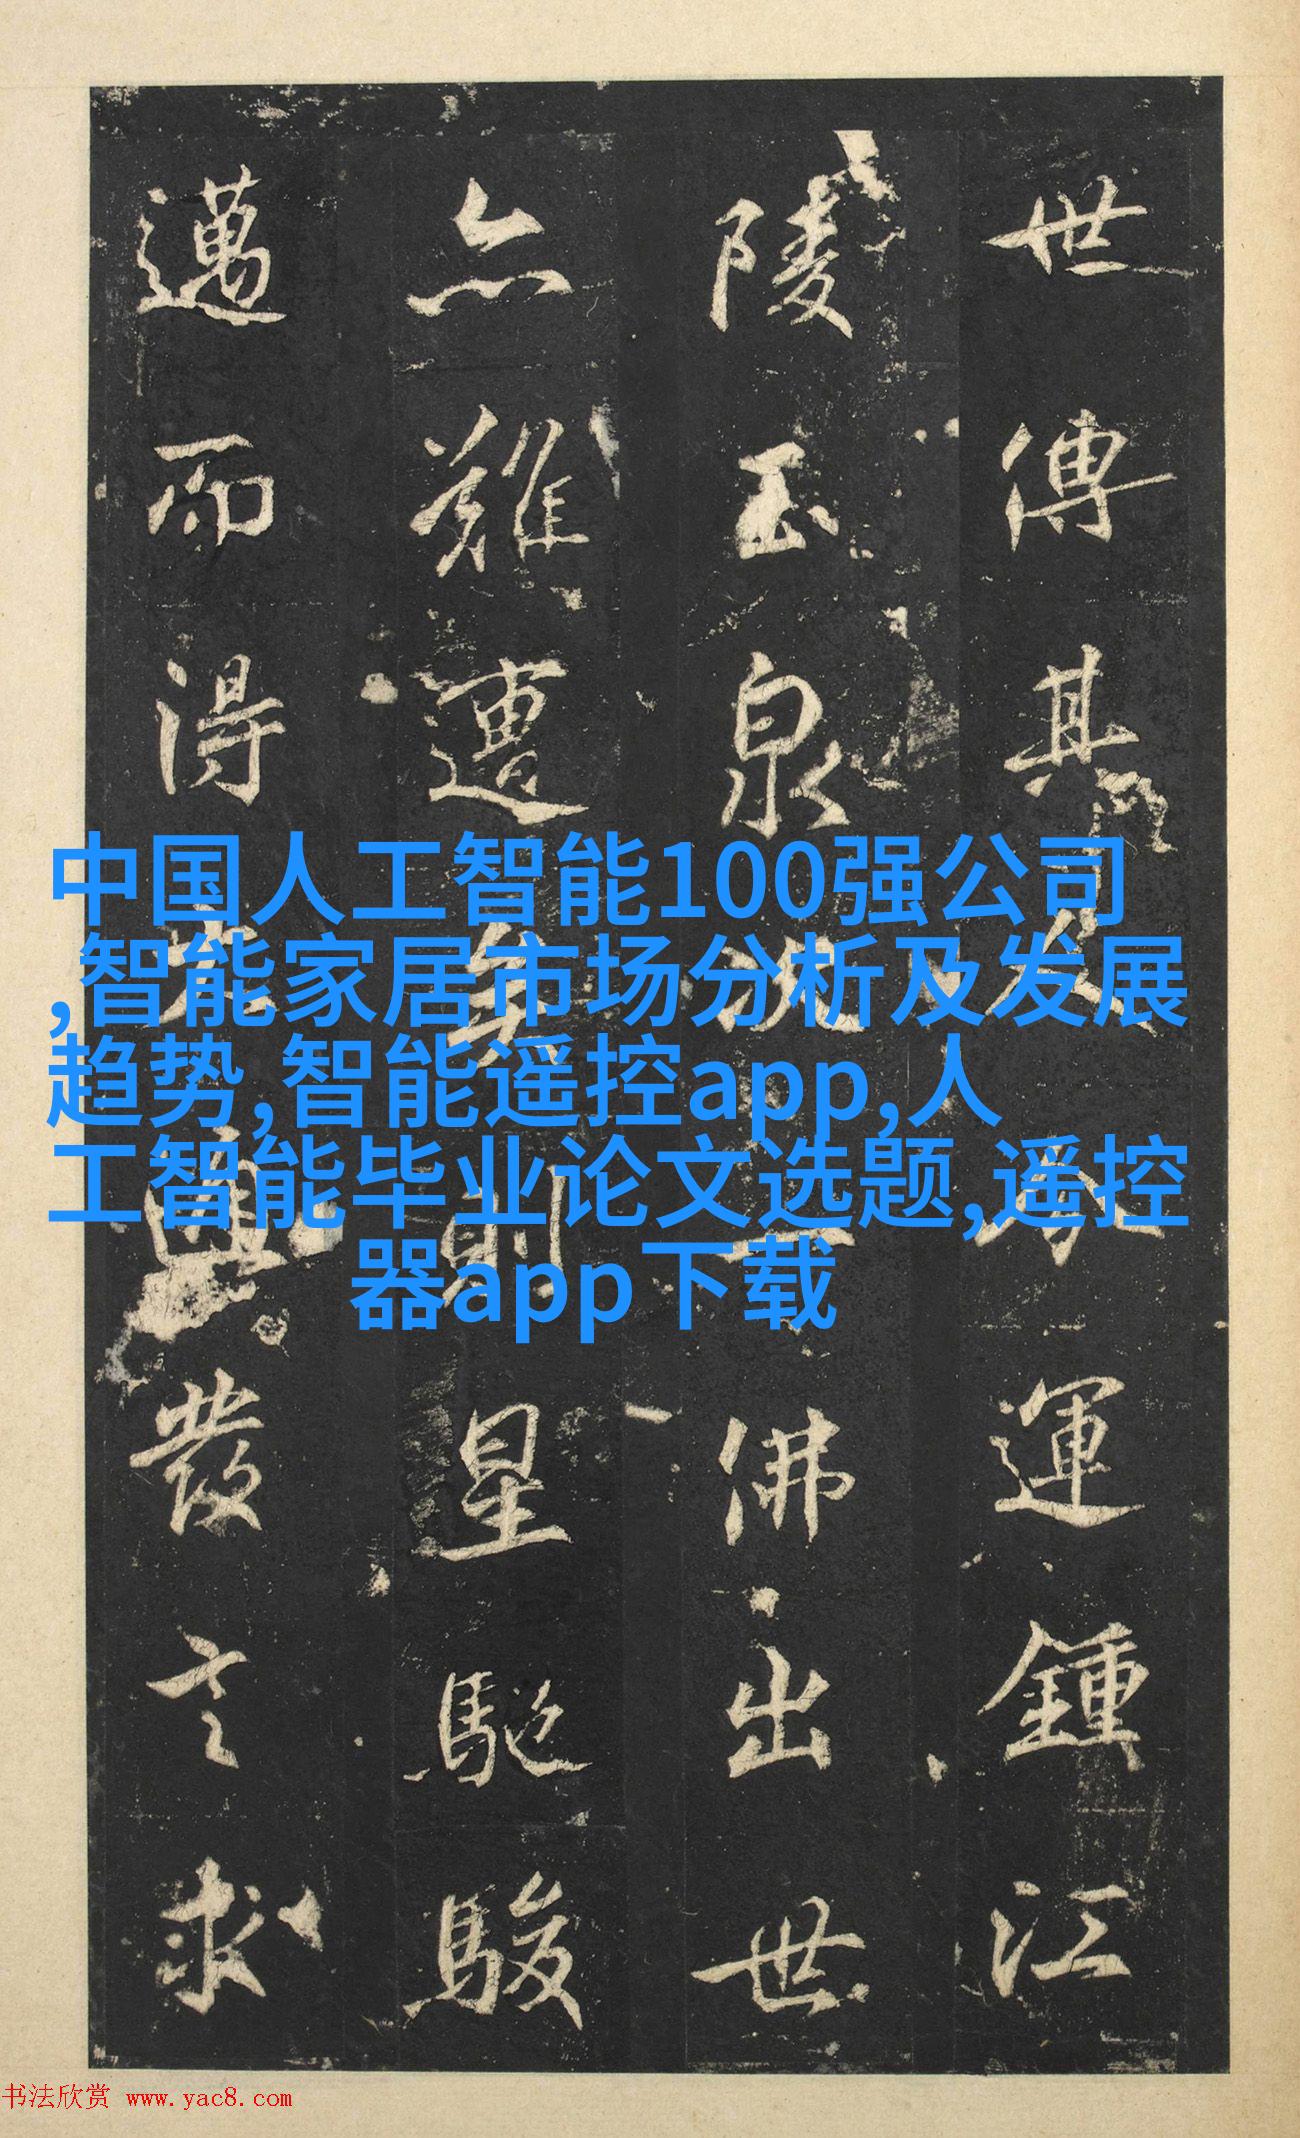 世傳其運鍾江
陵玉泉況一佛出世
亦難遭矣則星馳駿
邁而得興發求
中国人工智能100强公司
,智能家居市场分析及发展
趋势,智能遥控app,人
工智能毕业论文选题,遥控
器app下载
书法欣赏 www.yac8.com